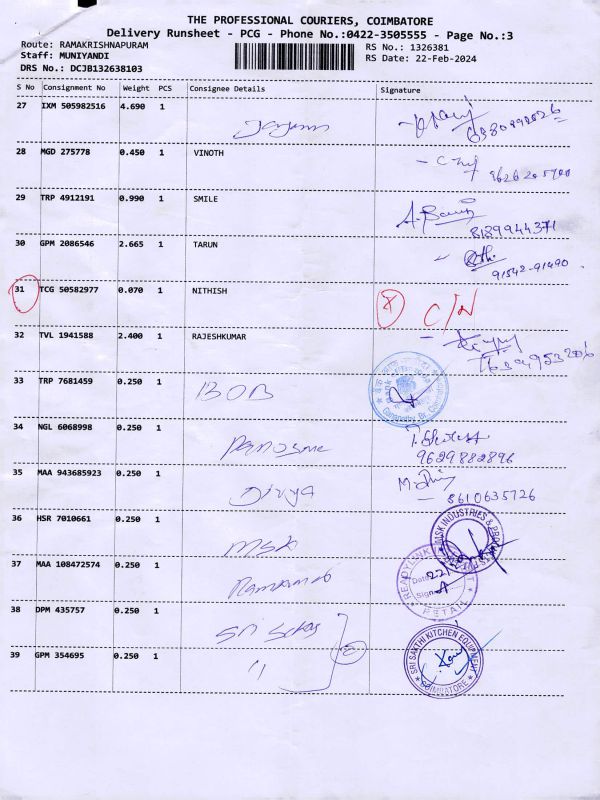 THE PROFESSIONAL COURIERS, COIMBATORE
Delivery Runsheet - PCG - Phone No.:0422-3505555 - Page No.:3
Route: RAMAKRISHNAPURAM
RS No.: 1326381
Staff: MUNIYANDI
RS Date: 22-Feb-2024
DRS No.: DCJB132638103
S No Consignment No Weight PCS Consignee Details Signature
27 IXM 505982516 4.690 1
28 MGD 275778 0.450 1 VINOTH
29 TRP 4912191 0.990 1 SMILE
8189944371
30 GPM 2086546 2.665 1 TARUN
91542-91490
31 TCG 50582977 0.070 1 NITHISH C/N
32 TVL 1941588 2.400 1 RAJESHKUMAR
33 TRP 7681459 0.250 1 BOB
34 NGL 6068998 0.250 1
9629882896
35 MAA 943685923 0.250 1 Divya
8610635726
36 HSR 7010661 0.250 1 MSK
MSK INDUSTRIES &
37 MAA 108472574 0.250 1
RETAIL
38 DPM 435757 0.250 1 Sri
39 GPM 354695 0.250 1 "
SRI SAKTHI KITCHEN EQUIPMENT
COIMBATORE